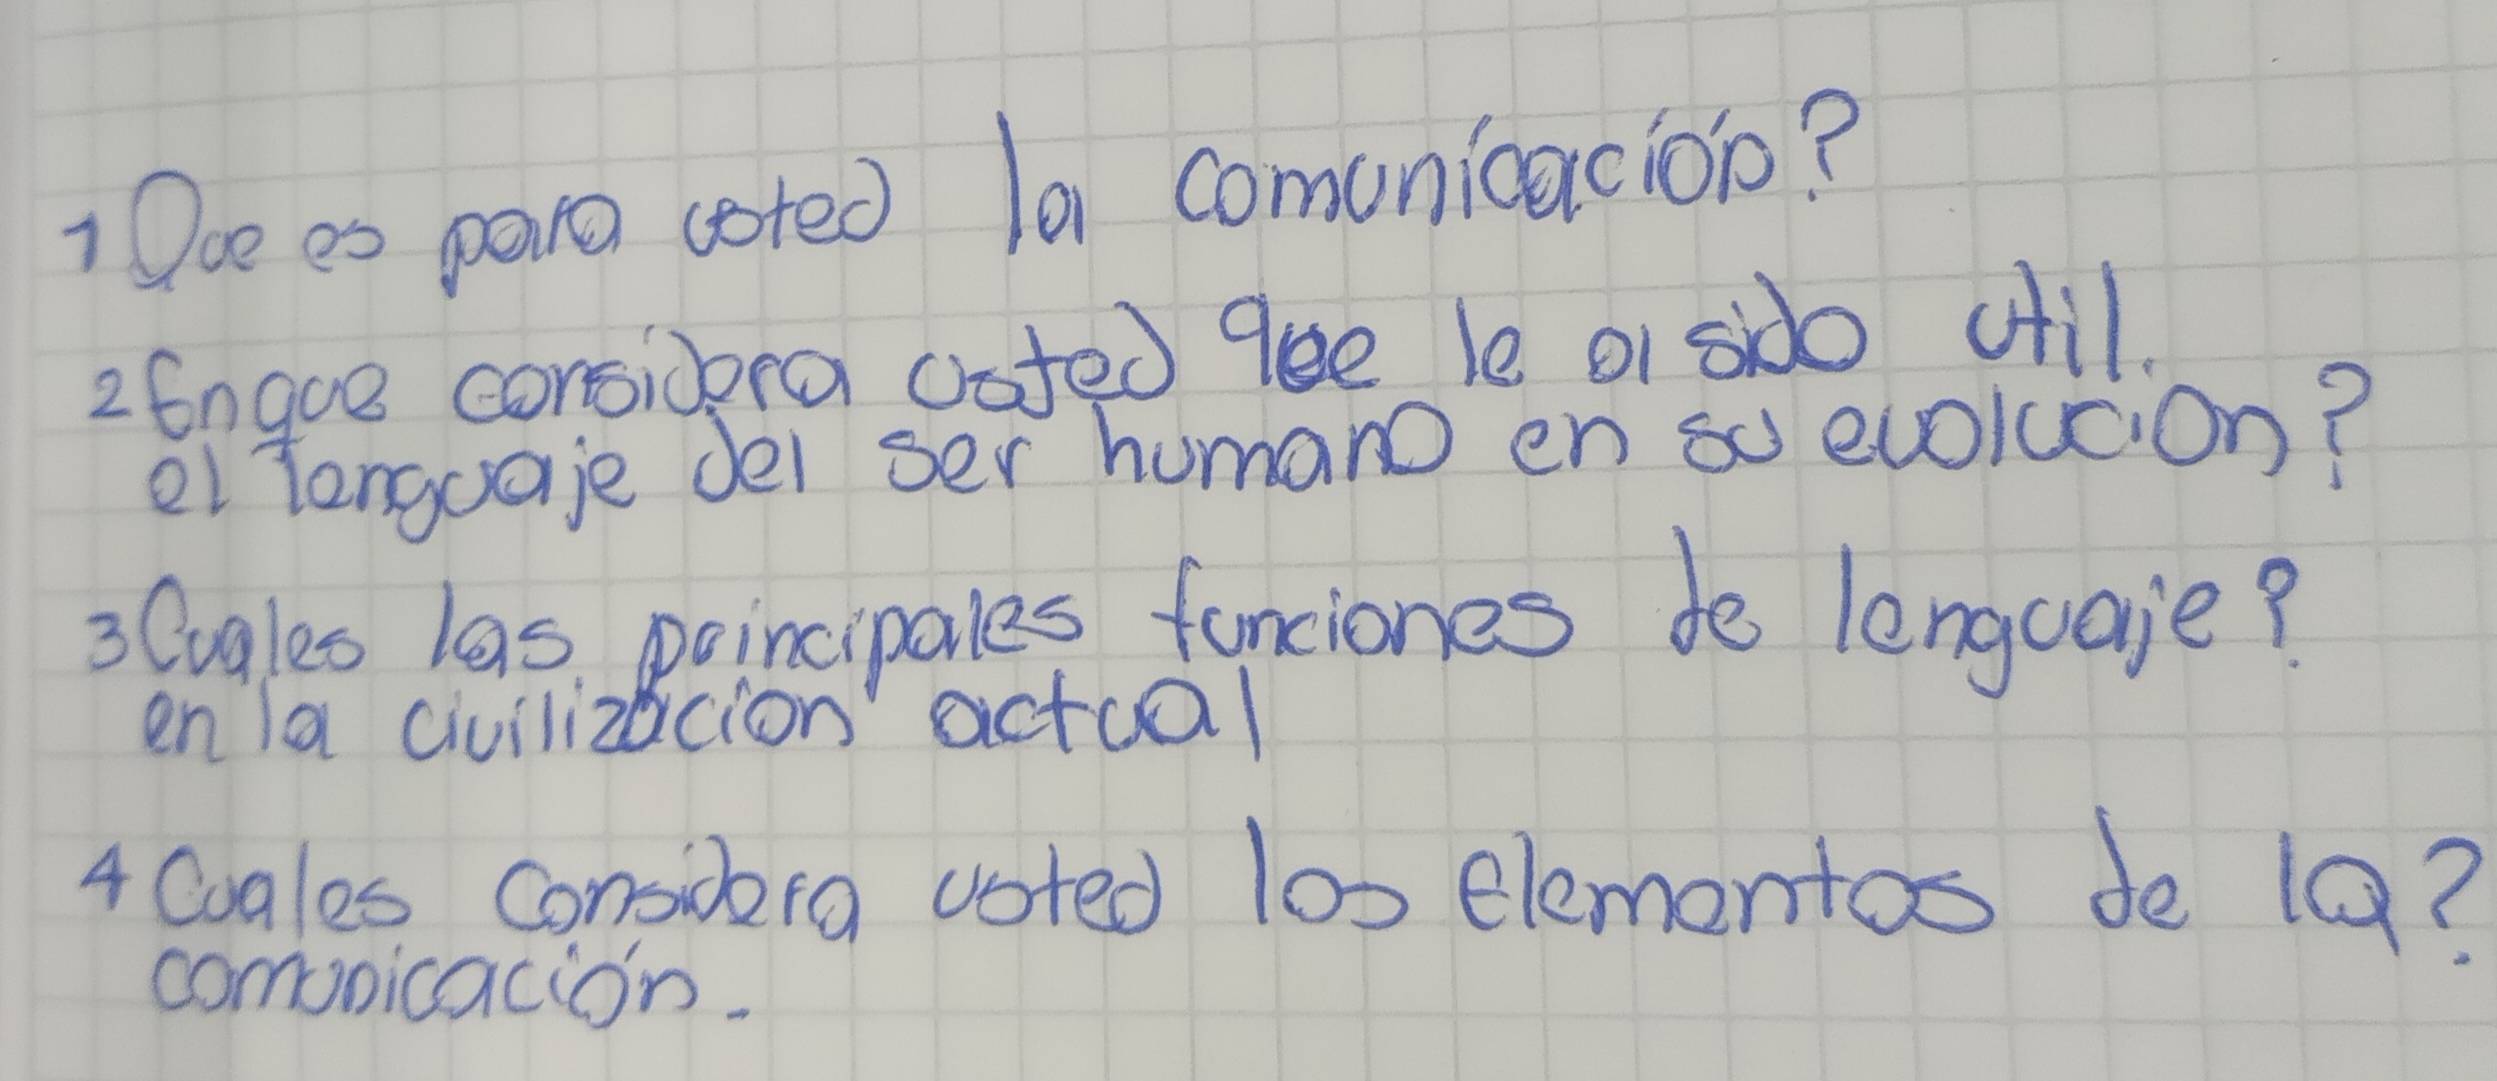 1 Que es para usted la comunicación?
2 Enque considera usted que le a sido util.
el lenguaje del ser humano en su evolucion?
3 Cuales las principales funciones de lenguaje?
en la civilizacion actual
4 Cuales considera usted los elementos de la?
comunicación.